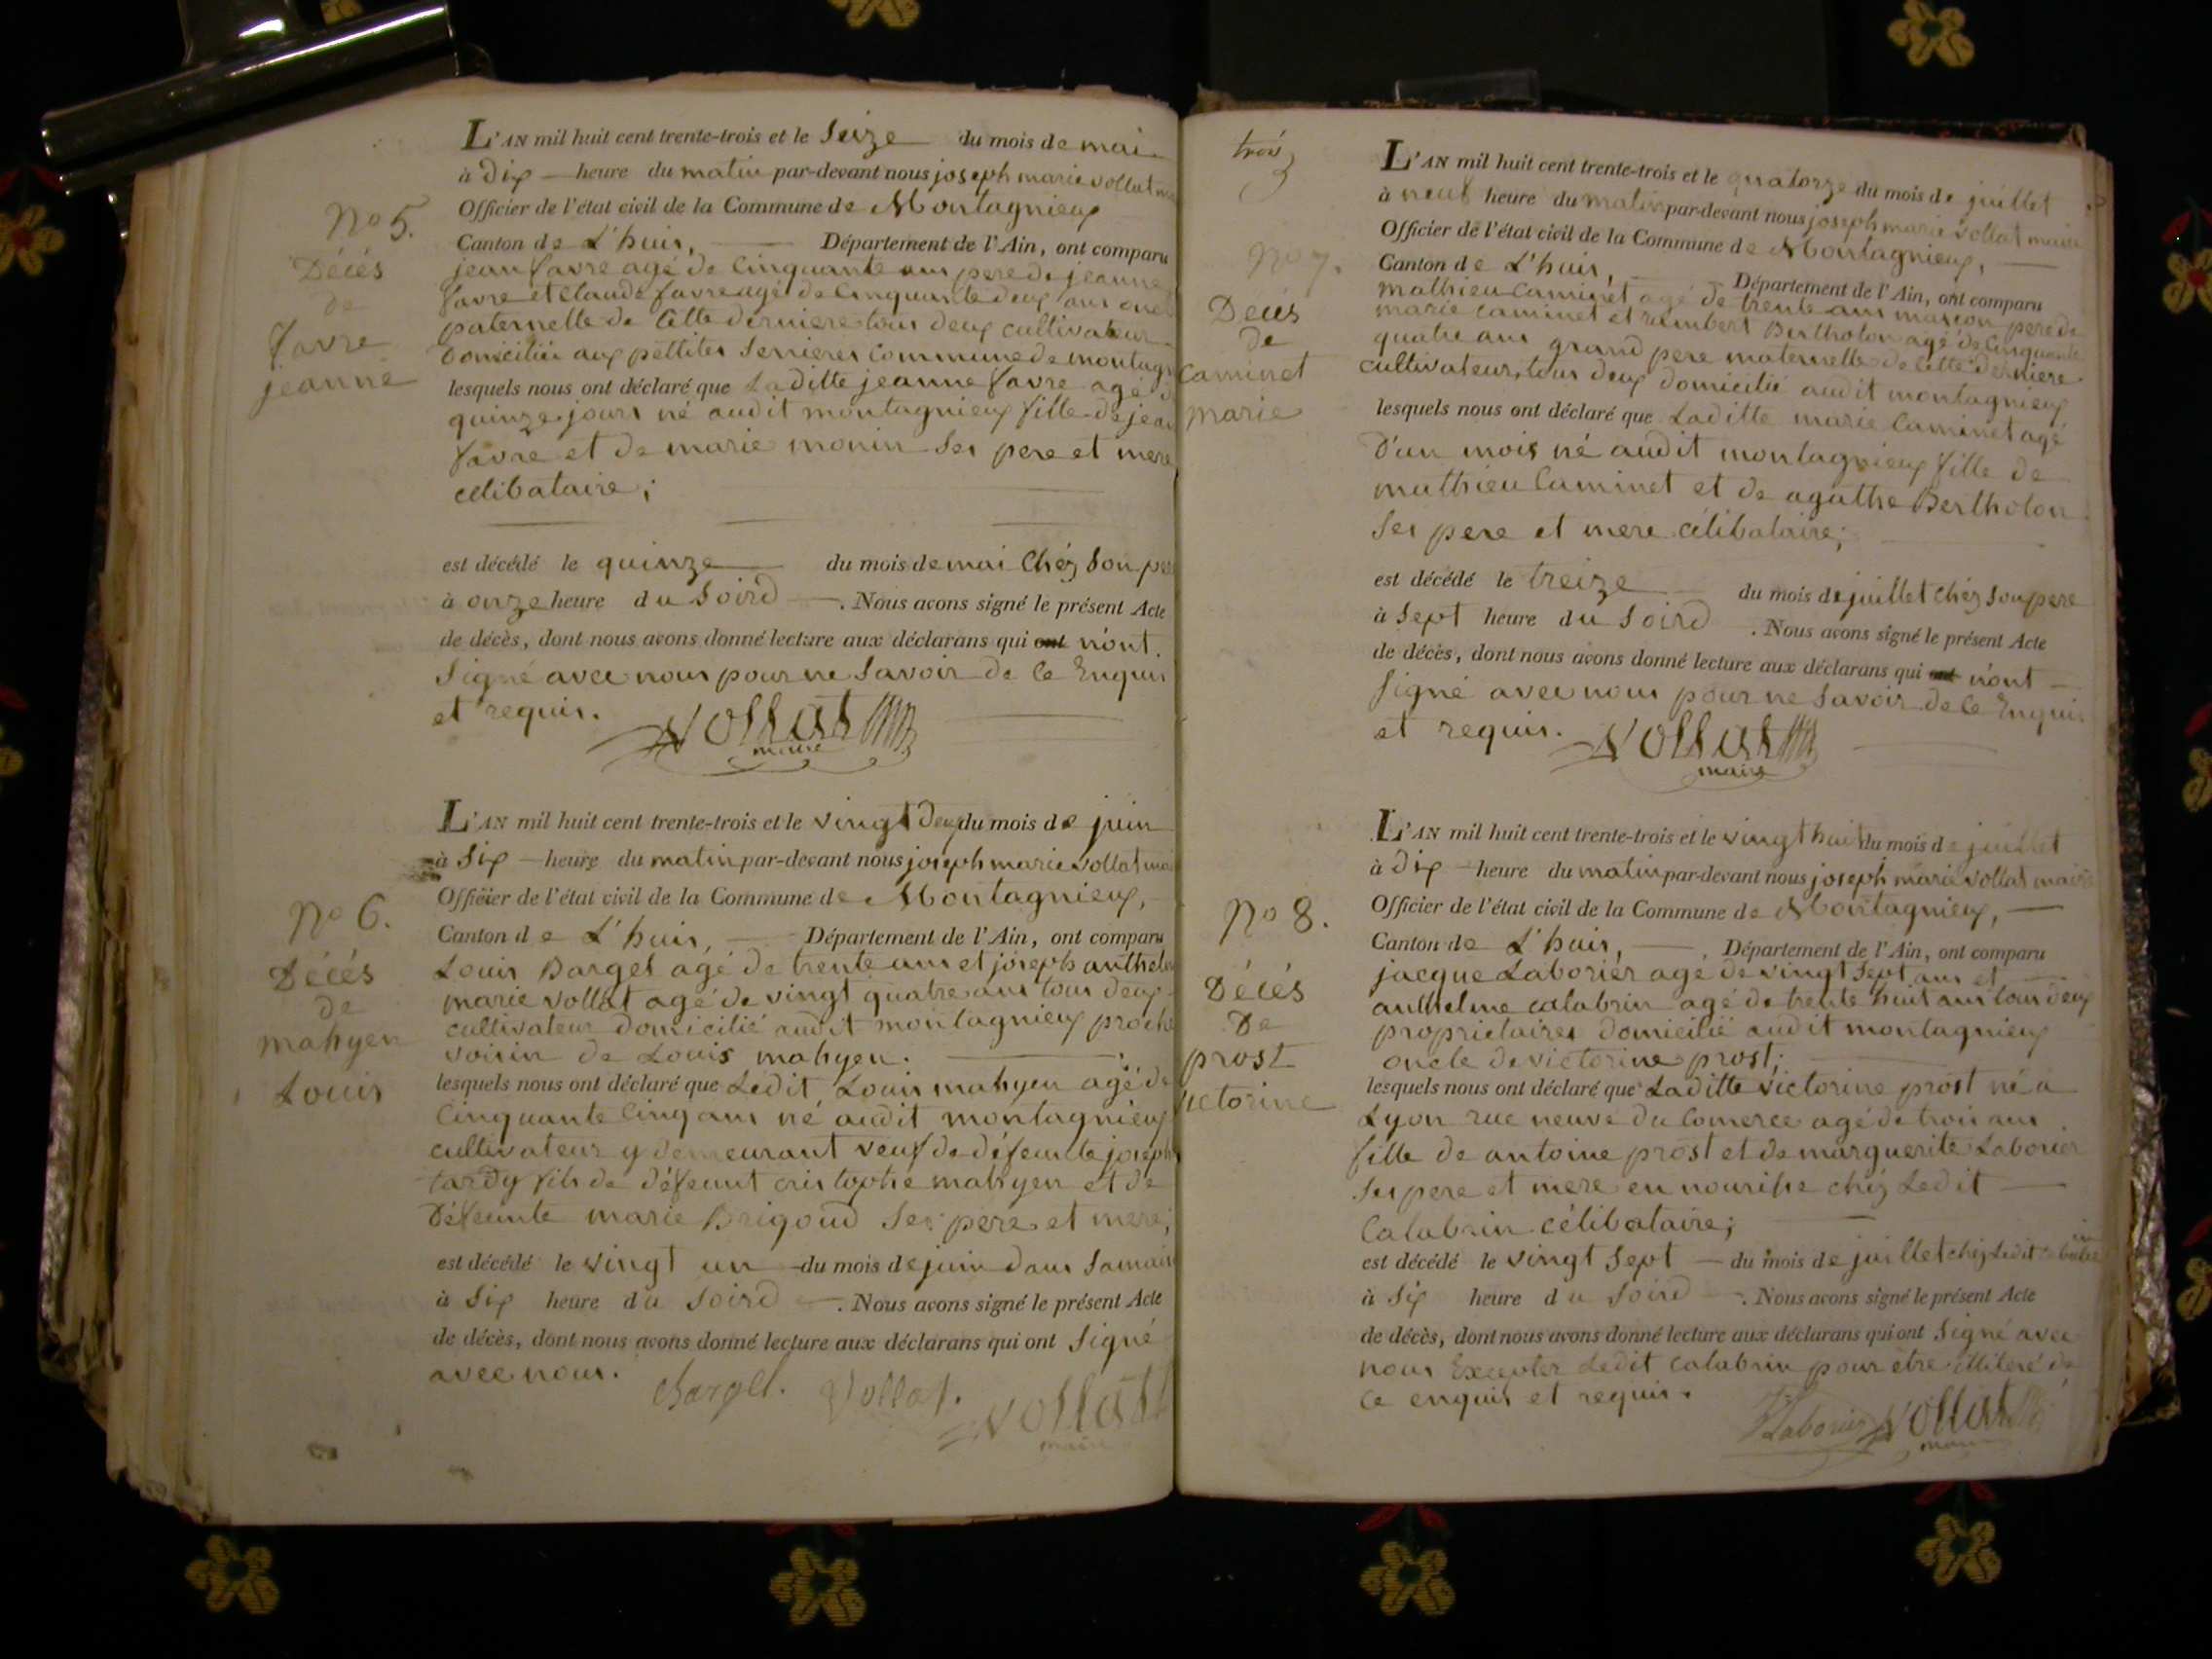 No 5.
Décés
de
favre
jeanne
L'AN mil huit cent trente-trois et le Seize du mois de mai
à dix heure du matin par-devant nous joseph marie vollat
Officier de l'état civil de la Commune de Montagnieux
Canton de L'huis, Département de l'Ain, ont comparu
jean favre agé de Cinquante ans pere de jeanne
favre et Claude favre agé de Cinquante deux ans oncle
paternelle de Cette derniere tous deux cultivateur
domicilié aux pettites Serrieres Commune de montagn
lesquels nous ont déclaré que Laditte jeanne favre agé de
quinze jours né audit montagnieux fille de jean
favre et de marie monin Ses pere et mere
célibataire;
est décédé le quinze du mois de mai Chéz Son pere
à onze heure du Soird. Nous avons signé le présent Acte
de décès, dont nous avons donné lecture aux déclarans qui ont n'ont
Signé avec nous pour ne Savoir de Ce Enquis
et requis. Vollat
maire
No 6.
Décés
de
mahyen
Louis
L'AN mil huit cent trente-trois et le vingt deux du mois de juin
à Six heure du matin par-devant nous joseph marie vollat mai
Officier de l'état civil de la Commune de Montagnieux,
Canton de L'huis, Département de l'Ain, ont comparu
Louis Barget agé de trente ans et joseph anthelme
marie vollat agé de vingt quatre ans tous deux
cultivateur domicilié audit montagnieux proche
voisin de Louis mahyen.
lesquels nous ont déclaré que Ledit Louis mahyen agé de
Cinquante Cinq ans né audit montagnieux
cultivateur y demeurant veuf de défeunte joseph
tardy fils de défeunt cristophe mahyen et de
défeunte marie Brigoud Ses pere et mere;
est décédé le vingt un du mois de juin dans Sa maison
à Six heure du Soird. Nous avons signé le présent Acte
de décès, dont nous avons donné lecture aux déclarans qui ont Signé
avec nous. Barget. Vollat. Vollat
maire
trois
3
No 7.
Décés
de
Caminet
marie
L'AN mil huit cent trente-trois et le quatorze du mois de juillet
à neuf heure du matin par-devant nous joseph marie vollat maire
Officier de l'état civil de la Commune de Montagnieux,
Canton de L'huis, Département de l'Ain, ont comparu
mathieu Caminet agé de trente ans mascon pere de
marie Caminet et rambert Bertholon agé de Cinquante
quatre ans grand pere maternelle de Cette derniere
cultivateur, tous deux domicilié audit montagnieux
lesquels nous ont déclaré que Laditte marie Caminet agé
D'un mois né audit montagnieux fille de
mathieu Caminet et de agathe Bertholon
Ses pere et mere célibataire;
est décédé le treize du mois de juillet chéz Son pere
à Sept heure du Soird. Nous avons signé le présent Acte
de décès, dont nous avons donné lecture aux déclarans qui ont n'ont
Signé avec nous pour ne Savoir de Ce Enquis
et requis. Vollat
maire
No 8.
Décés
De
prost
victorine
L'AN mil huit cent trente-trois et le vingt huit du mois de juillet
à dix heure du matin par-devant nous joseph marie vollat maire
Officier de l'état civil de la Commune de Montagnieux,
Canton de L'huis, Département de l'Ain, ont comparu
jacque Laborier agé de vingt Sept ans et
anthelme calabrin agé de trente huit ans tous deux
proprietaires domicilié audit montagnieux
oncle de victorine prost;
lesquels nous ont déclaré que Laditte victorine prost né a
Lyon rue neuve du Comerce agé de trois ans
fille de antoine prost et de marguerite Laborier
Ses pere et mere en nourisse chéz Ledit
Calabrin célibataire;
est décédé le vingt Sept du mois de juillet chéz Ledit
à Six heure du Soird. Nous avons signé le présent Acte
de décès, dont nous avons donné lecture aux déclarans qui ont Signé avec
nous Excepter Ledit calabrin pour être illiteré de
Ce enquis et requis.
Laborier Vollat
maire